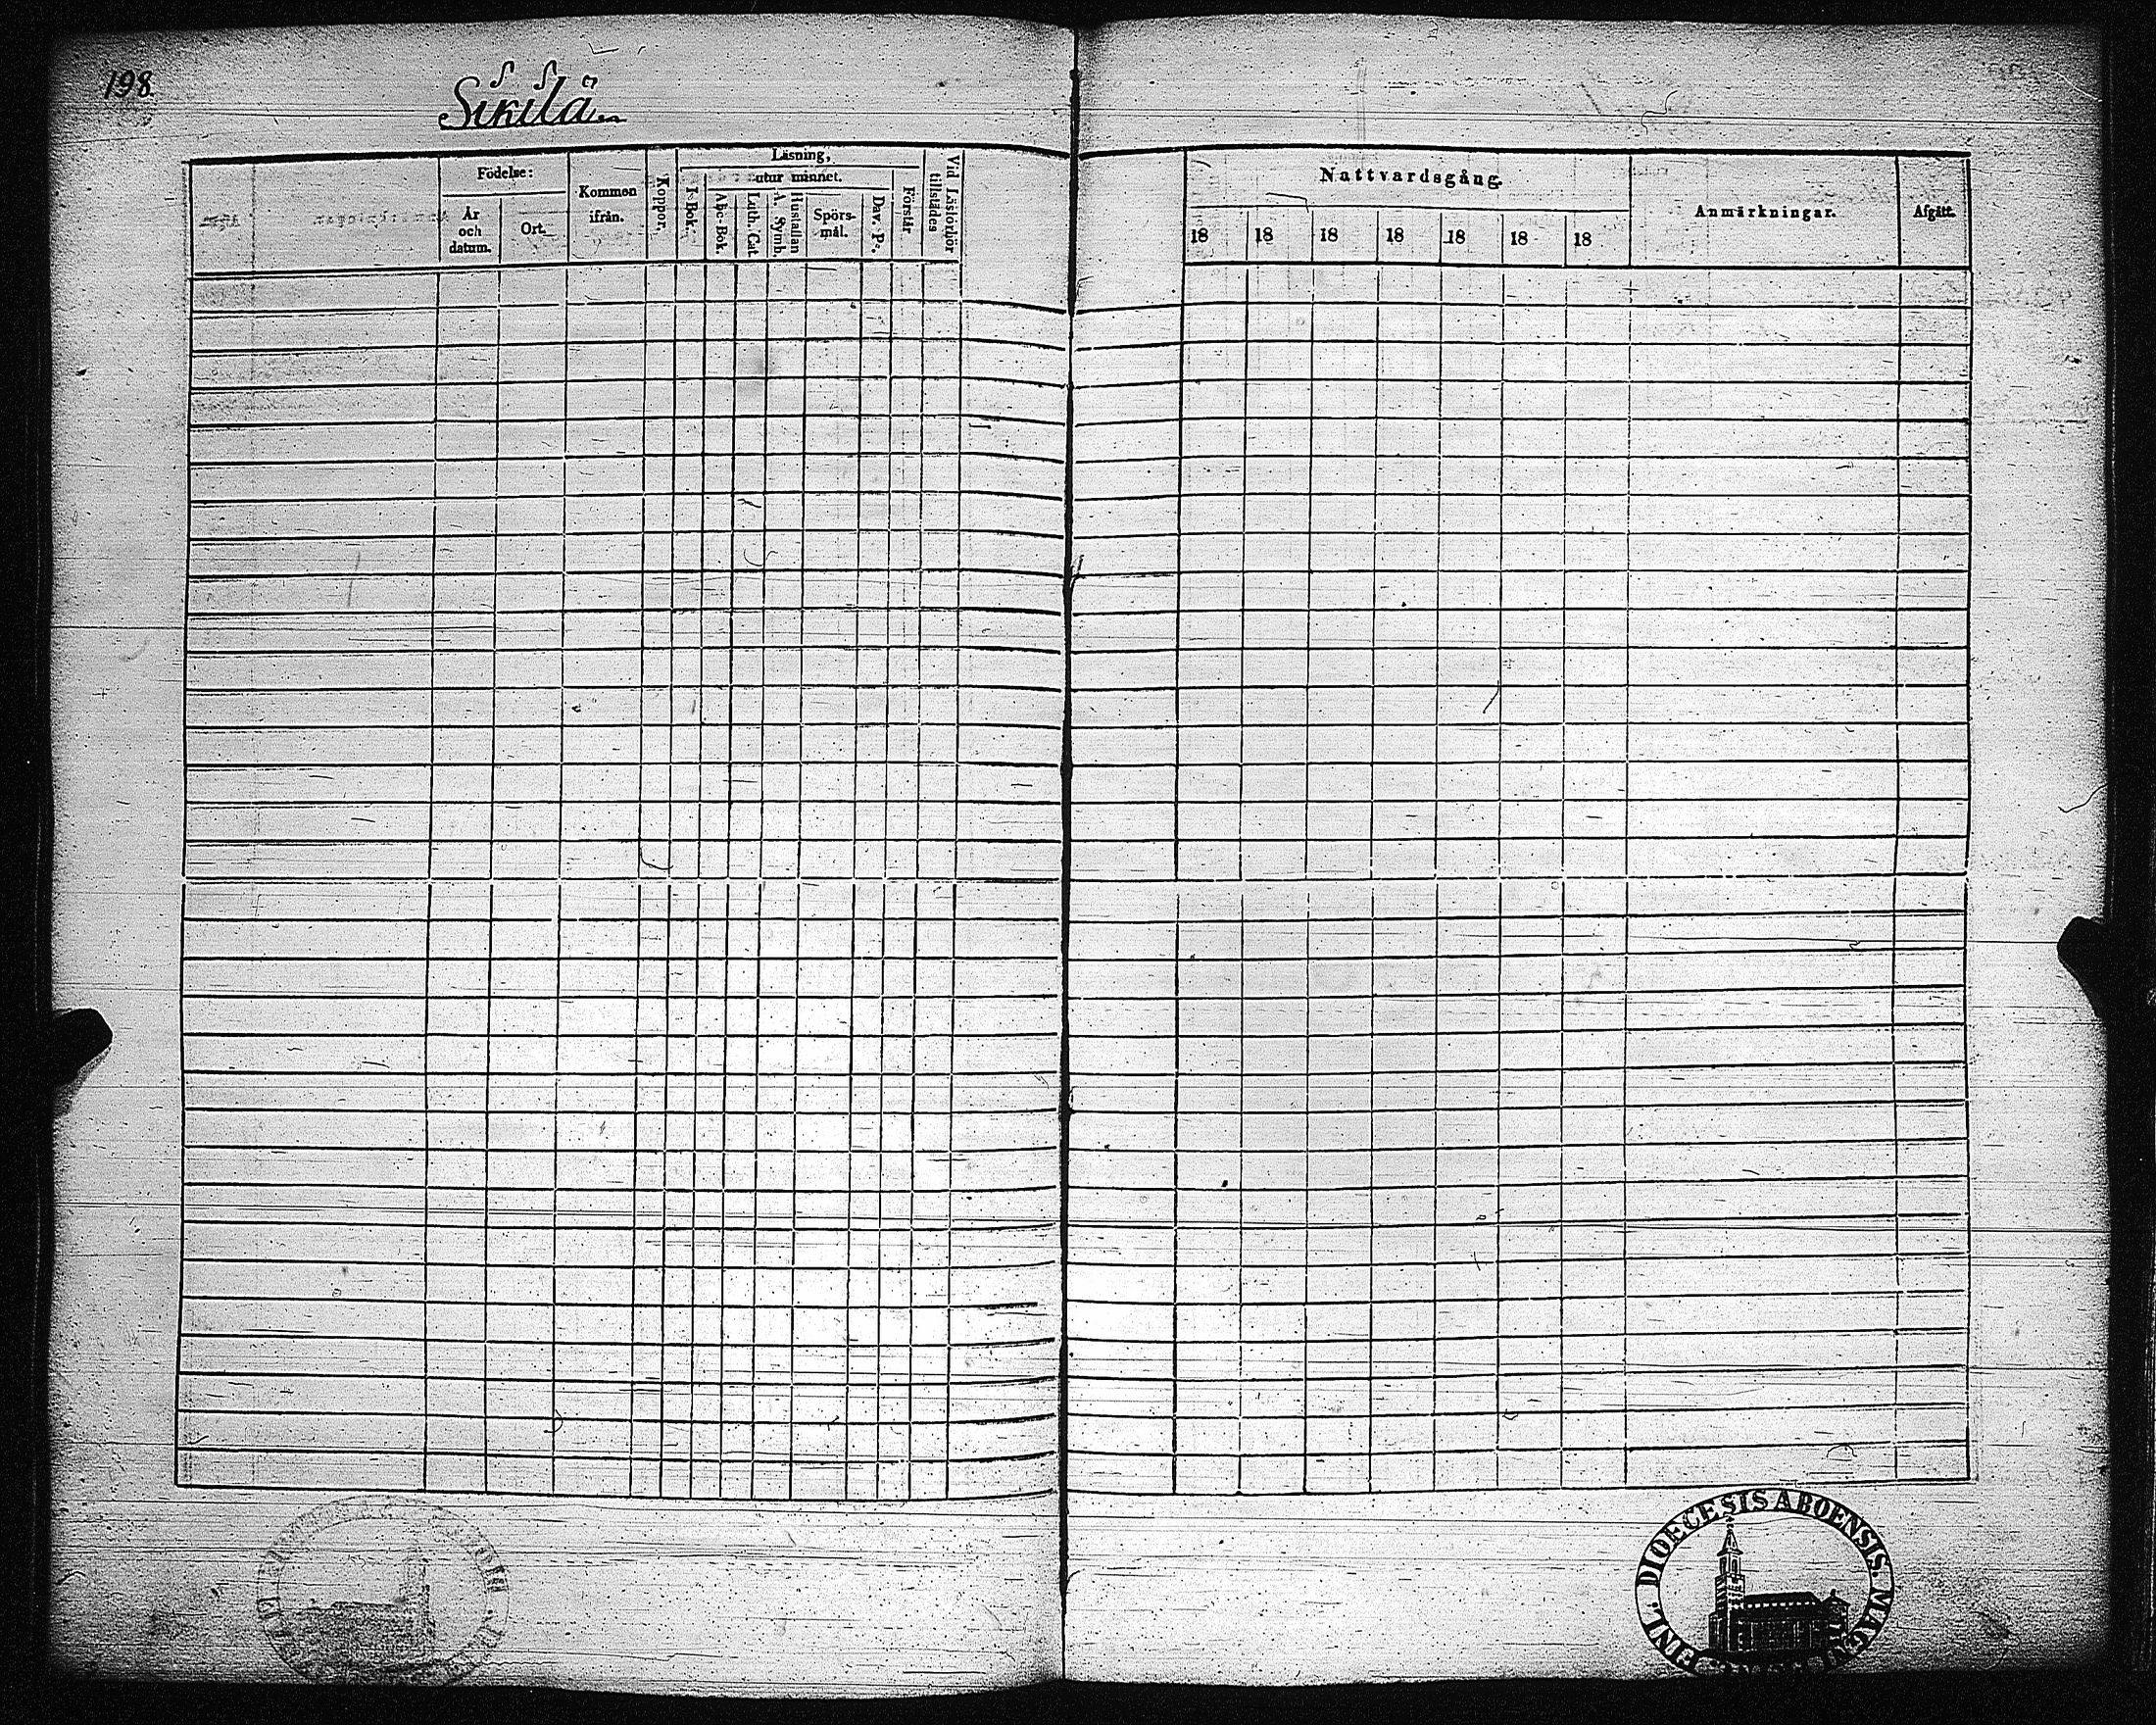 198.
Sikilä
Födelse:
År
och
datum.
Ort.
Kommen
ifrån.
Koppor.
Läsning,
utur minnet.
I Bok.
Abc-Bok.
Luth. Cat.
Hustaflan
A. Symb.
Spörs-
mål.
Dav. Ps.
Förstår
Vid Läsförhör
tillstädes
Nattvardsgång.
18 18 18 18 18 18 18
Anmärkningar.
Afgått.
DIOECESIS ABOENSIS. MAGNI